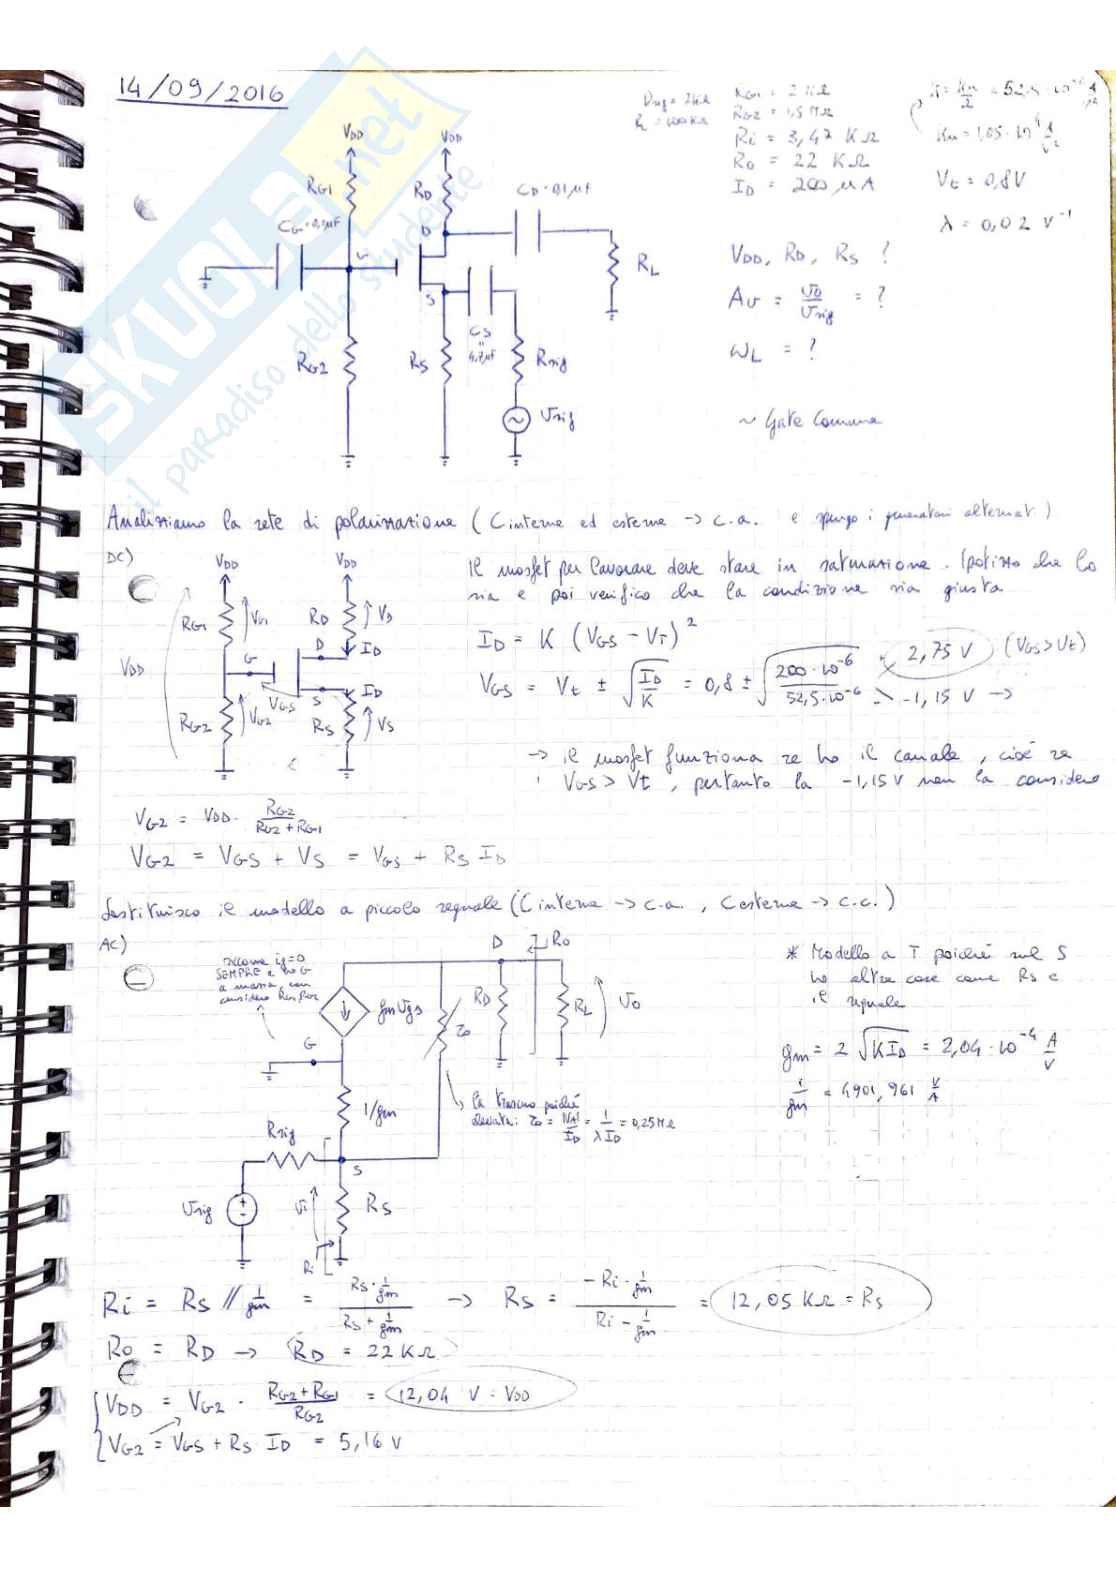 14/09/2016
Ri = 3,47 KΩ
Ro = 22 KΩ
ID = 200 μA
Vt = 0,8V
λ = 0,02 V⁻¹
VDD, RD, RS ?
Av = vo/vsig = ?
ωL = ?
~ Gate Comune
VDD
VDD
RG1
RD
CG = 0,1μF
CD = 0,1μF
D
G
S
RL
RG2
RS
CS = 4,7μF
Rsig
vsig
SKUOLA.net
il paradiso dello studente
Analizziamo la rete di polarizzazione ( C interne ed esterne → c.a. e spengo i generatori alternat )
DC)
VDD
VDD
RG1
VG1
RD
VD
D
ID
VDD
G
VGS
S
ID
RG2
VG2
RS
VS
Il mosfet per lavorare deve stare in saturazione. Ipotizzo che lo
sia e poi verifico che la condizione sia giusta
ID = K (VGS - VT)²
VGS = Vt ± √(ID/K) = 0,8 ± √(200·10⁻⁶/52,5·10⁻⁶) 2,75 V (VGS>Vt)
-1,15 V →
→ il mosfet funziona se ho il canale, cioè se
VGS > Vt, pertanto la -1,15 V non la considero
VG2 = VDD · RG2/(RG2+RG1)
VG2 = VGS + VS = VGS + RS ID
Sostituisco il modello a piccolo segnale (C interne → c.a., C esterne → c.c.)
AC)
siccome ig=0
SEMPRE e ho G
a massa, non
considero
D
Ro
gm vgs
ro
RD
RL
vo
G
1/gm
la trascuro poiché
elevata: ro = |VA|/ID = 1/(λ ID) = 0,25MΩ
Rsig
S
vsig
vi
RS
Ri
* Modello a T poiché sul S
ho altre cose come RS e
il segnale
gm = 2 √(K ID) = 2,04 · 10⁻⁴ A/V
1/gm = 4901,961 V/A
Ri = RS // 1/gm = (RS · 1/gm)/(RS + 1/gm) → RS = (-Ri · 1/gm)/(Ri - 1/gm) = 12,05 KΩ = RS
Ro = RD → RD = 22 KΩ
VDD = VG2 · (RG2+RG1)/RG2 = 12,04 V = VDD
VG2 = VGS + RS ID = 5,16 V